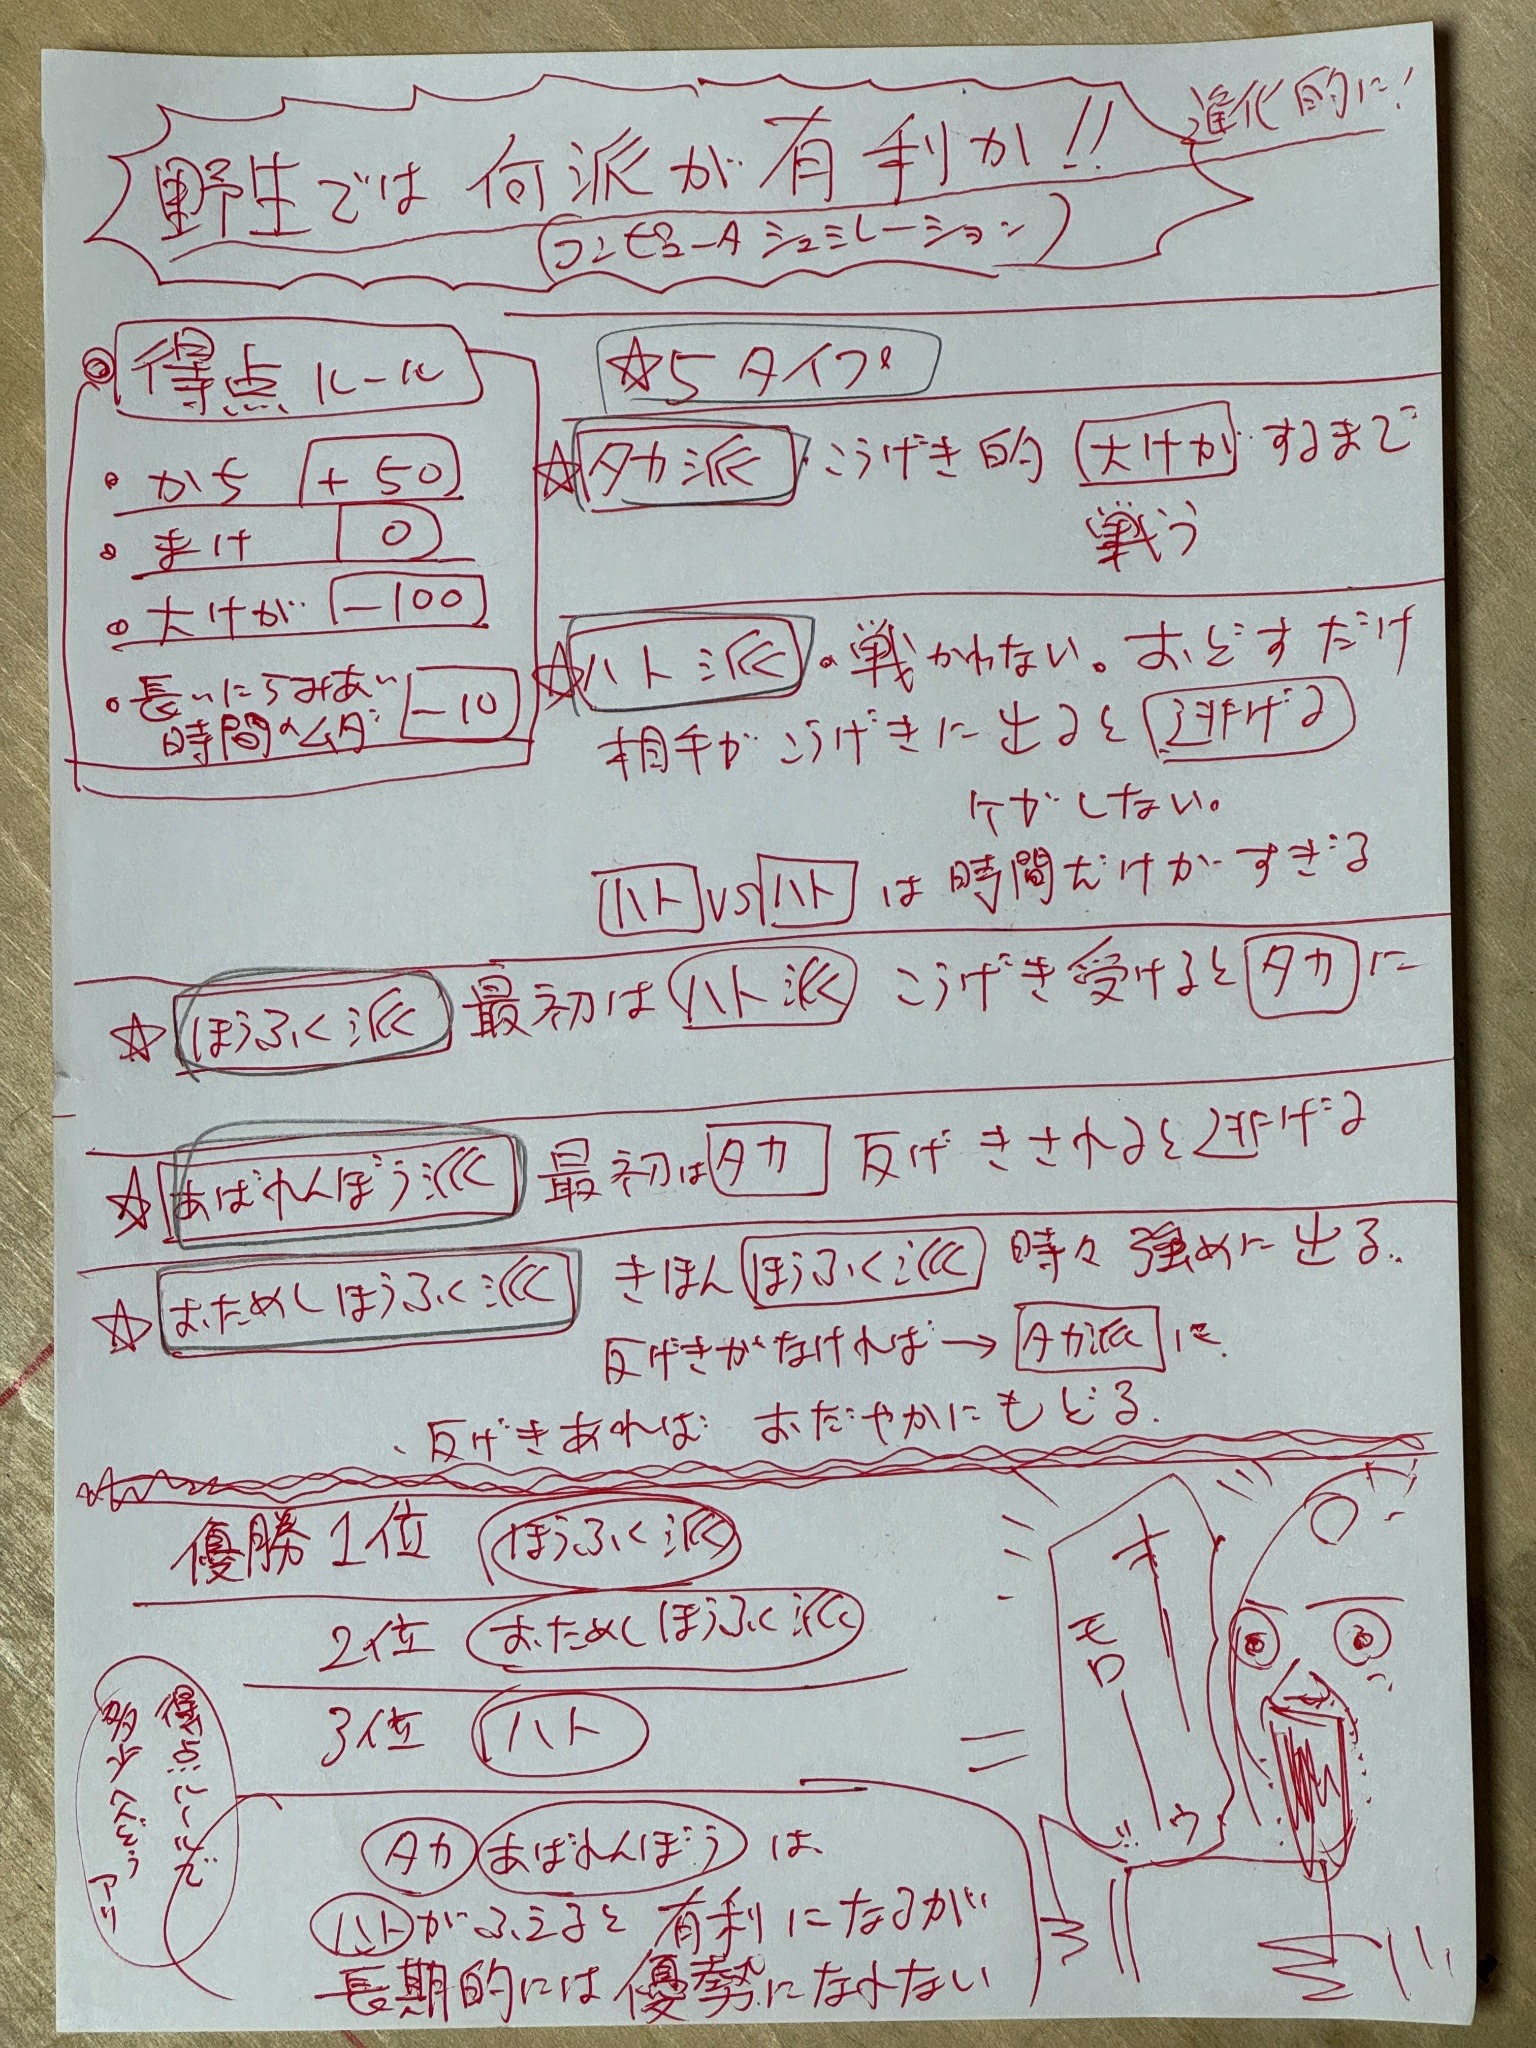 進化的に!
野生では何派が有利か!!
(コンピュータシュミレーション)
◎得点ルール
・かち +50
・まけ 0
・大けが -100
・長いにらみあい
時間のムダ -10
☆5タイプ
☆タカ派・こうげき的 大けがするまで
戦う
☆ハト派・戦かわない。おどすだけ
相手がこうげきに出ると逃げる
ケガしない。
ハトvsハトは時間だけがすぎる
☆ほうふく派 最初はハト派 こうげき受けるとタカに
☆あばれんぼう派 最初はタカ 反げきされると逃げる
☆おためしほうふく派 きほんほうふく派 時々強めに出る.
反げきがなければ→タカ派に.
、反げきあれば おだやかにもどる.
優勝1位 ほうふく派
2位 おためしほうふく派
3位 ハト
得点ルールで
多少へんどうアリ
タカ あばれんぼうは、
ハトがふえると有利になるが
長期的には優勢になれない
オーーウ
モローーッ